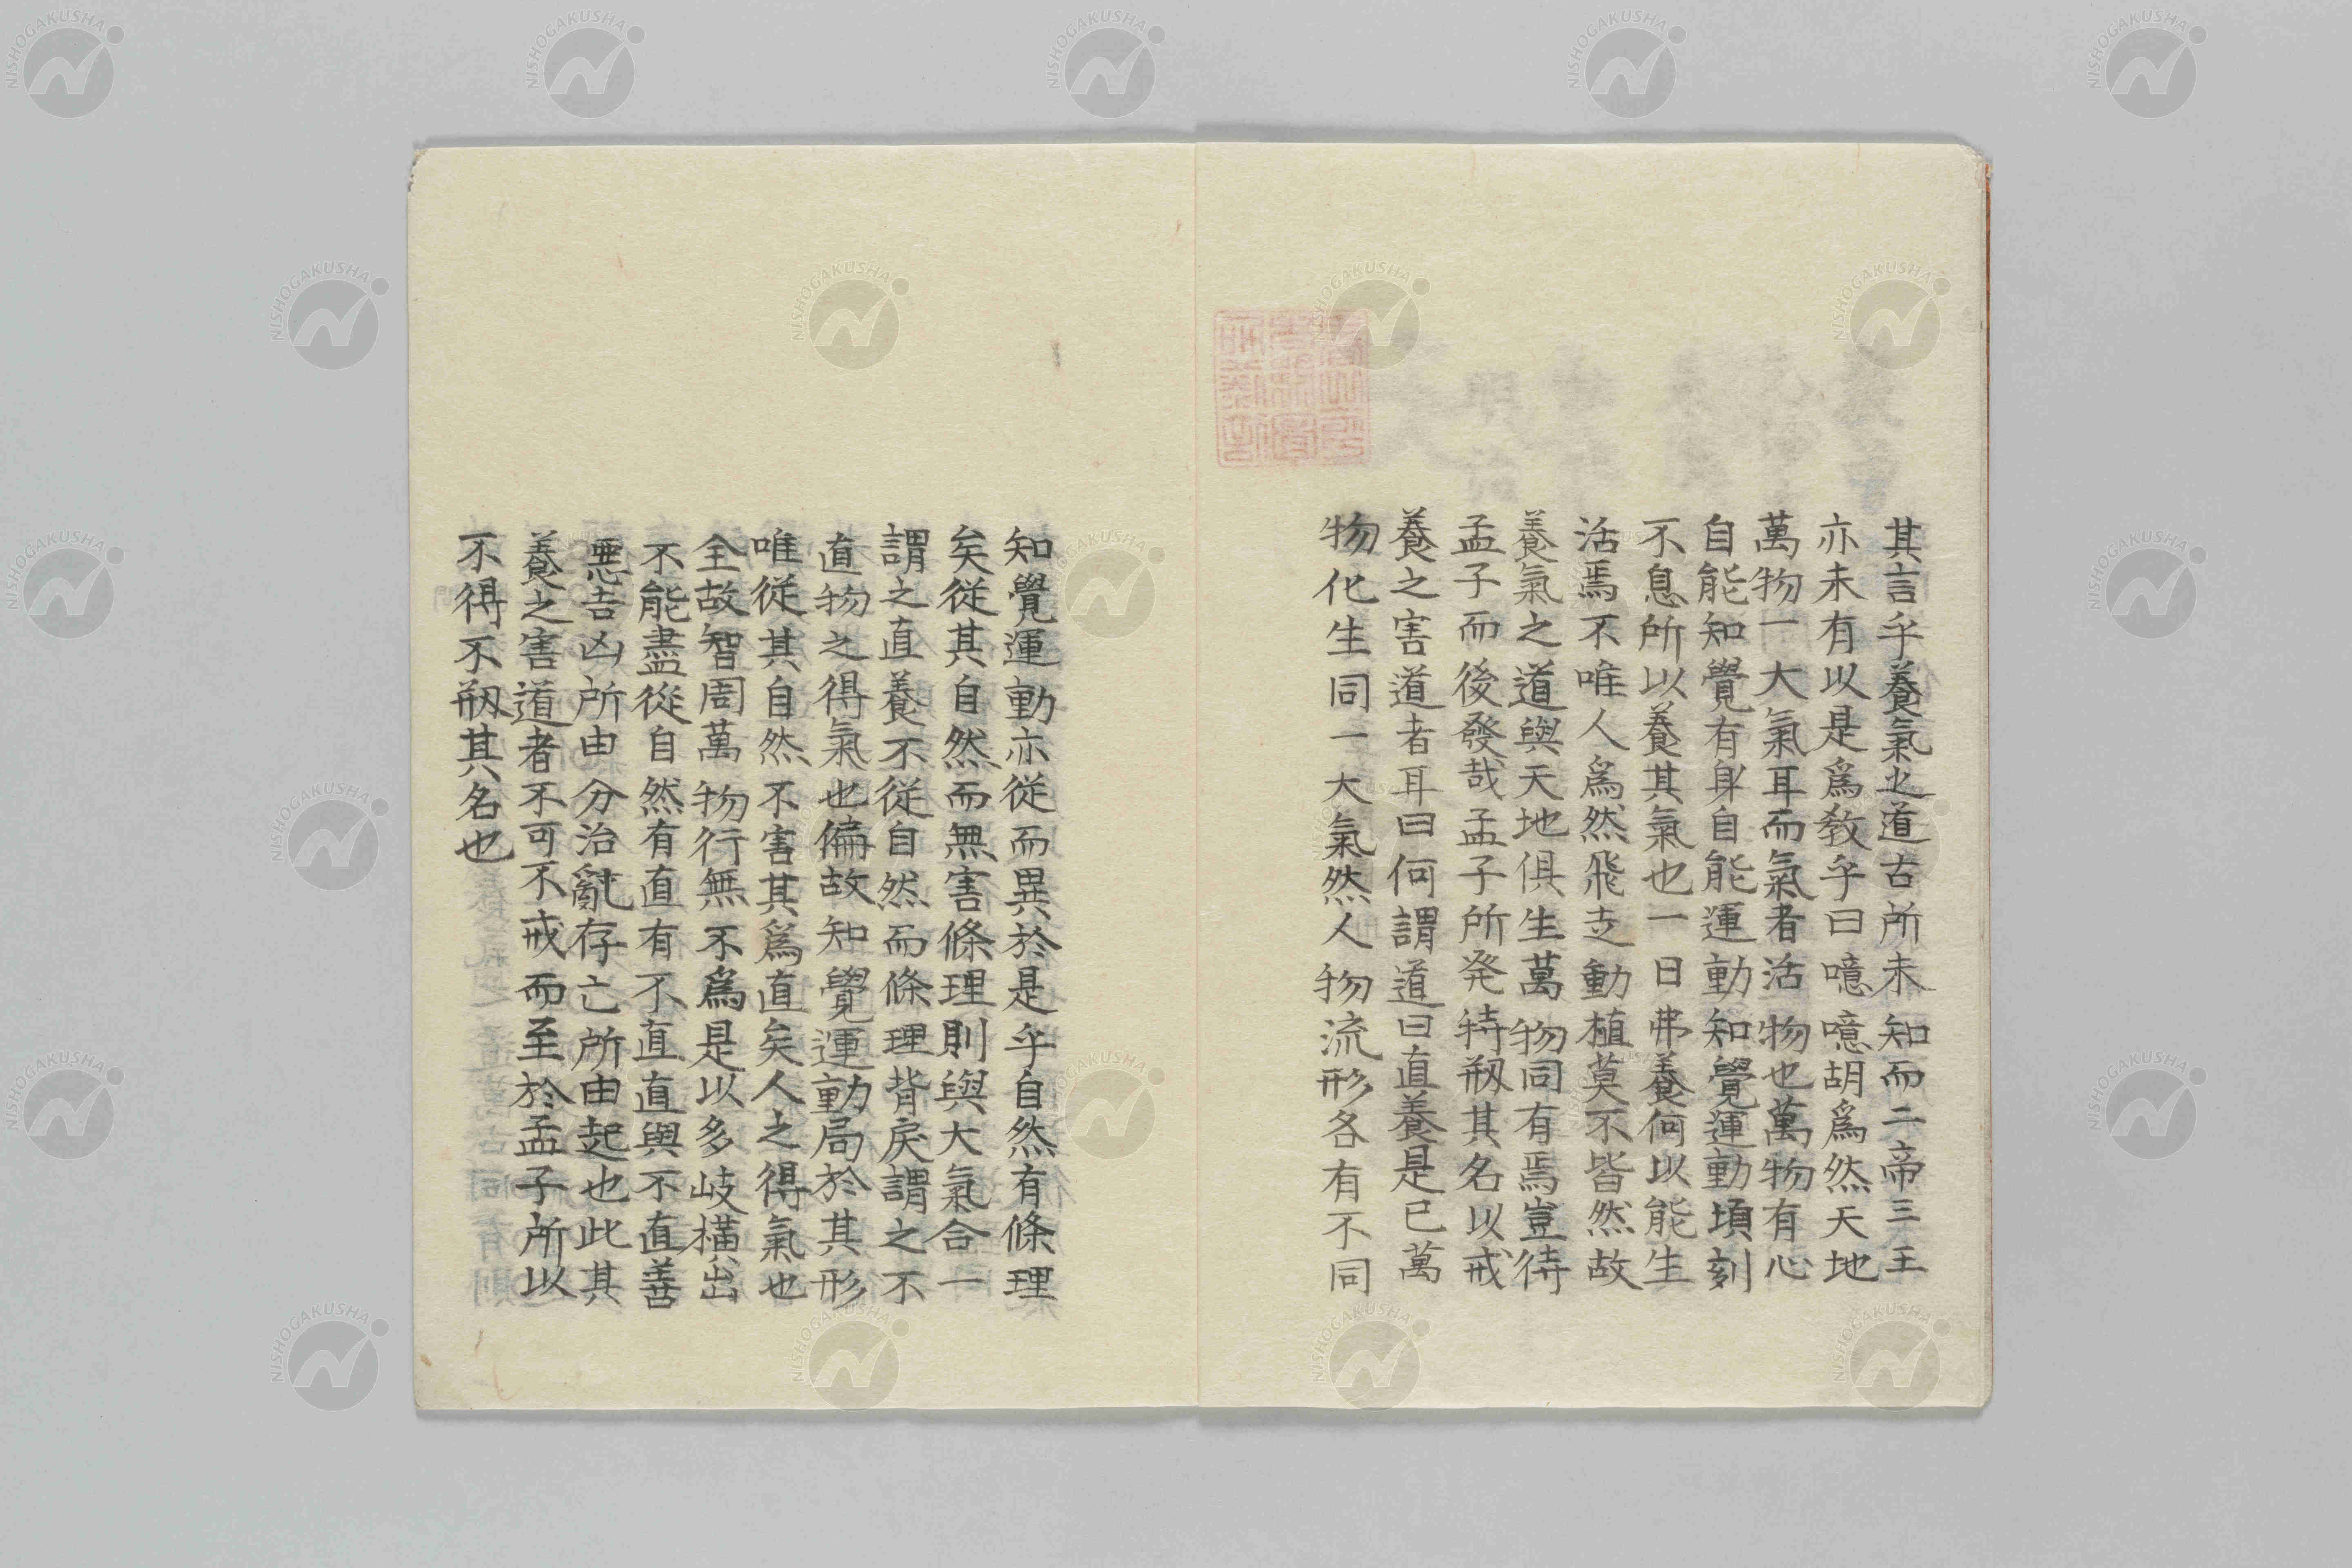 其言乎養氣之道古所未知而二帝三王
亦未有以是爲教乎曰噫噫胡爲然天地
萬物一大氣耳而氣者活物也萬物有心
自能知覺有身自能運動知覺運動頃刻
不息所以養其氣也一日弗養何以能生
活焉不唯人爲然飛走動植莫不皆然故
養氣之道與天地俱生萬物同有焉豈待
孟子而後發哉孟子所発特剏其名以戒
養之害道者耳曰何謂道曰直養是已萬
物化生同一大氣然人物流形各有不同
知覺運動亦從而異於是乎自然有條理
矣從其自然而無害條理則與大氣合一
謂之直養不從自然而條理背戾謂之不
直物之得氣也偏故知覺運動局於其形
唯從其自然不害其爲直矣人之得氣也
全故智周萬物行無不爲是以多岐橫出
不能盡從自然有直有不直直與不直善
惡吉凶所由分治亂存亡所由起也此其
養之害道者不可不戒而至於孟子所以
不得不剏其名也